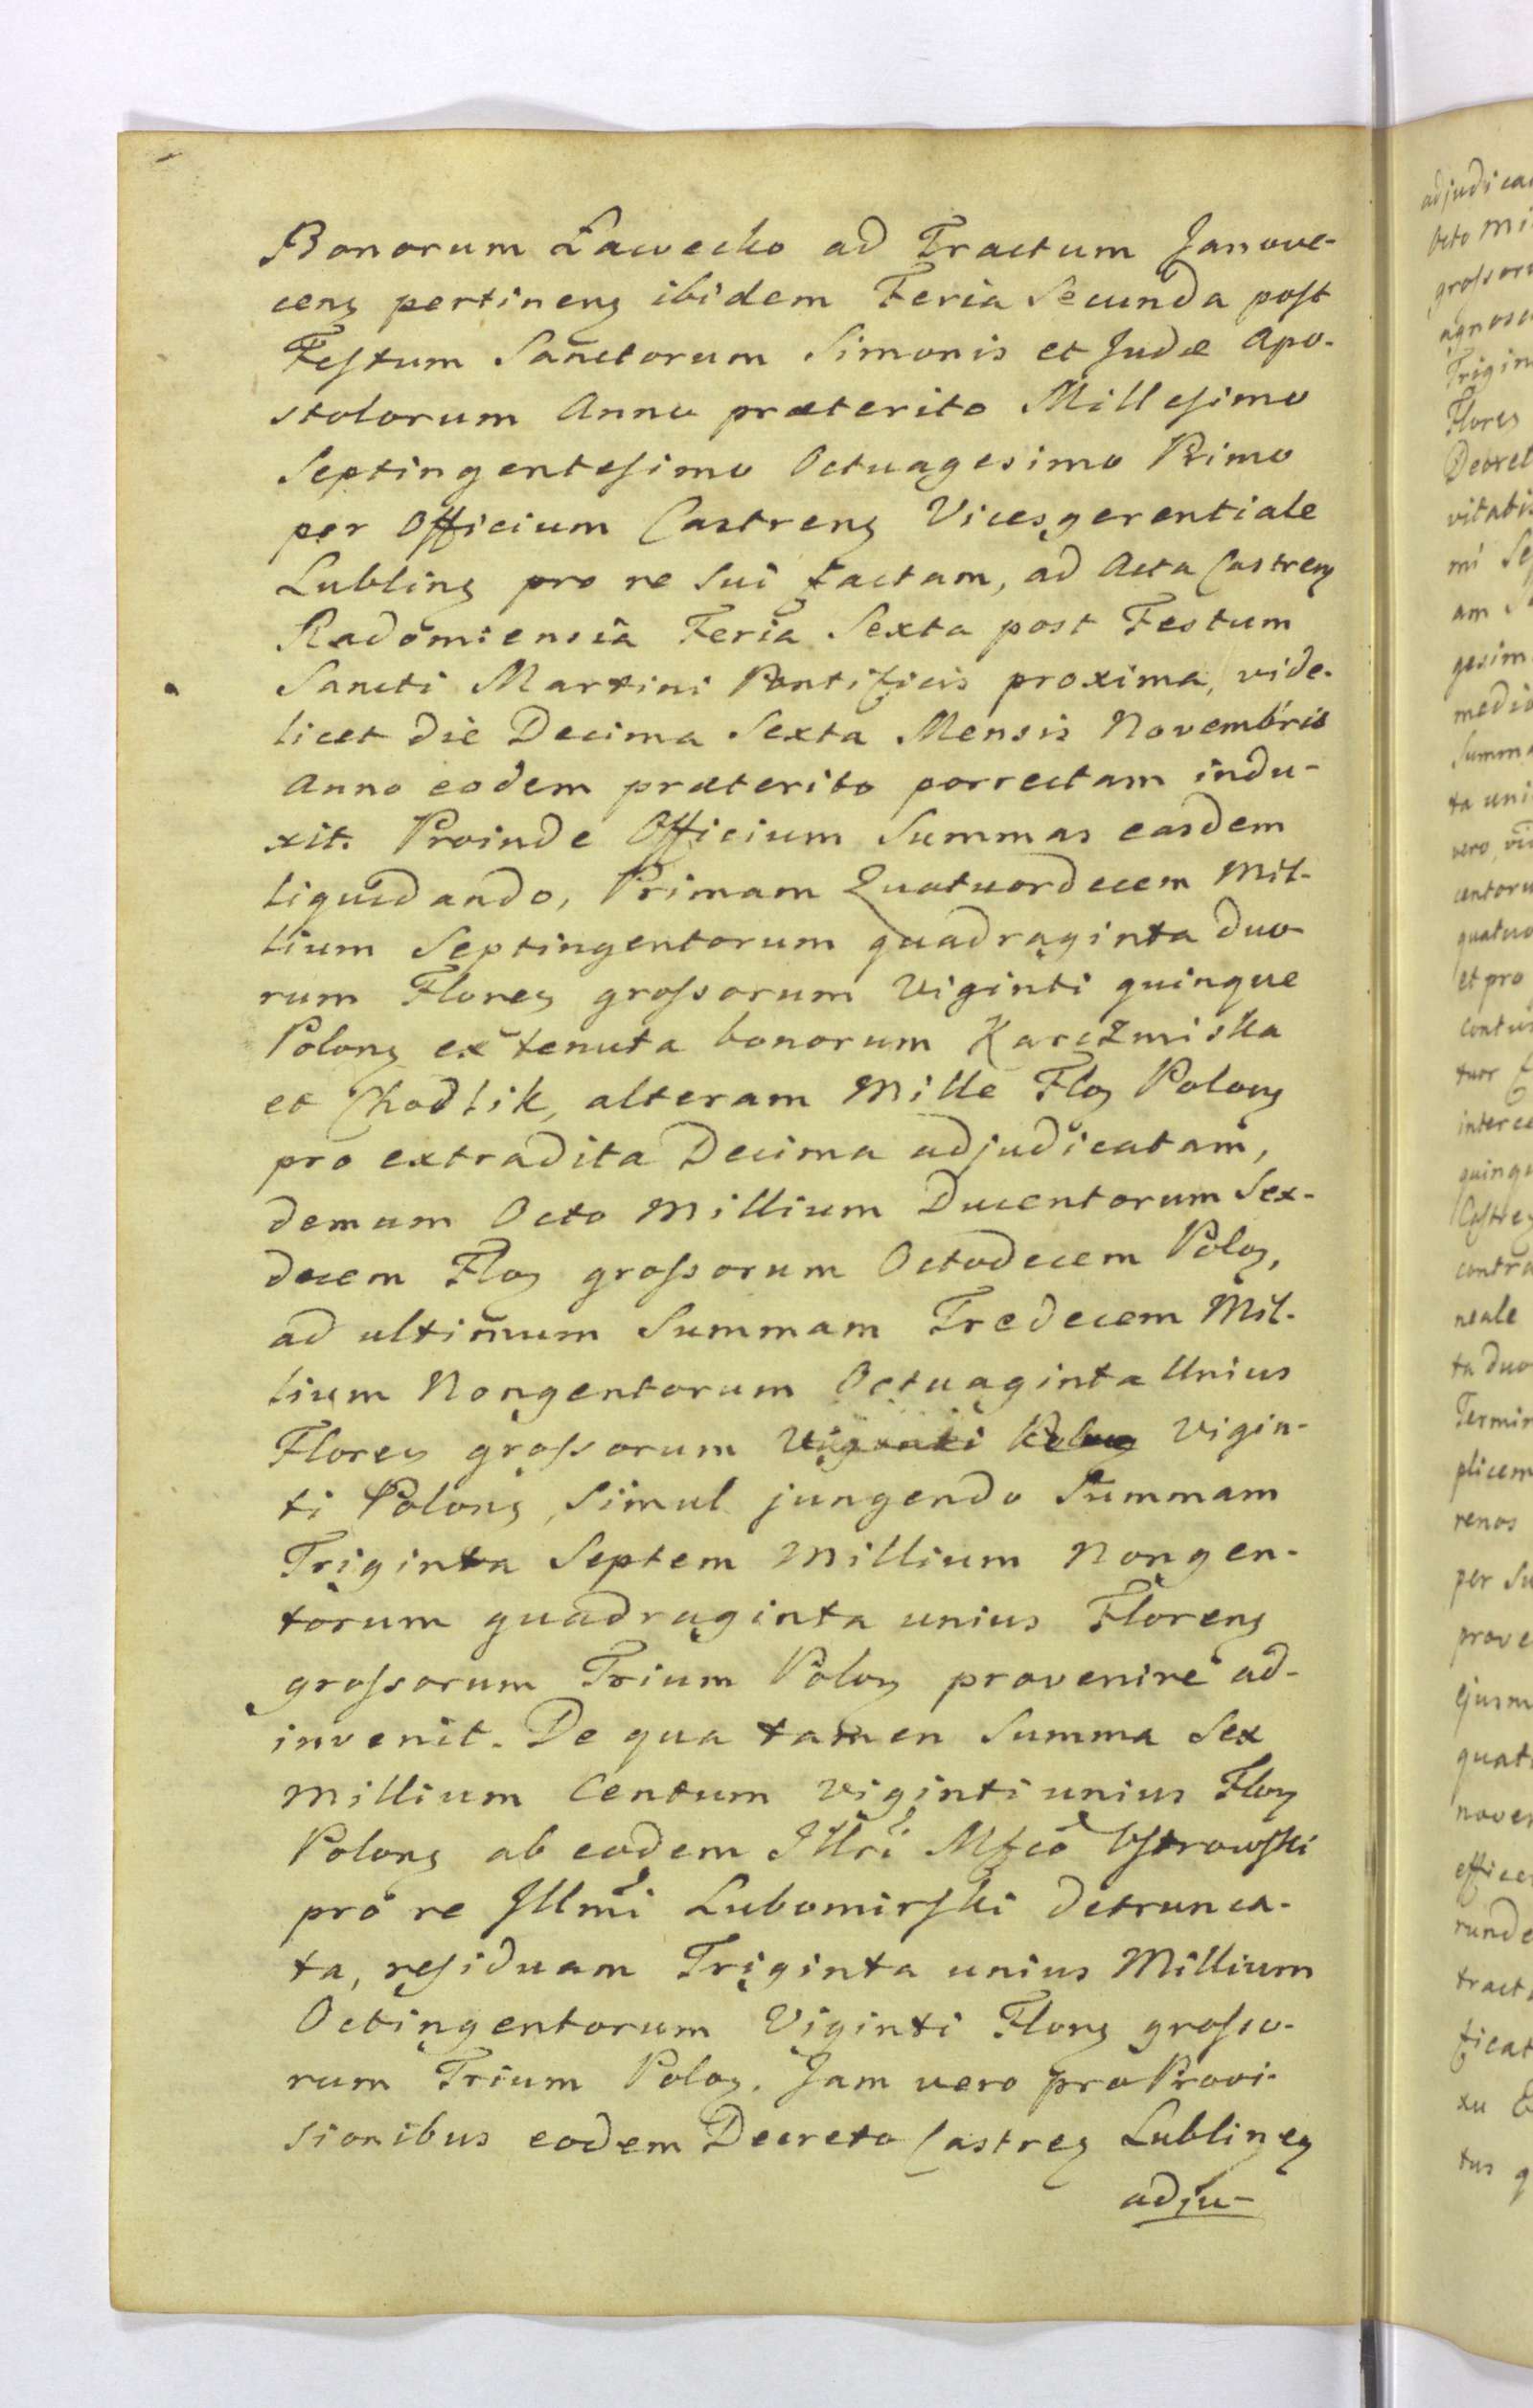 Bonorum Ławecko ad Tractum Janove-
ceng pertineng ibidem Feria Secunda post
Festum Sanctorum Simonis et Judæ Apo-
stolorum Anno præterito Millesimo
Septingentesimo Octuagesimo Primo
per Officium Castreng Vicesgerentiale
Lubling pro re sui factam, ad Acta Castreng
Radomiensia Feria Sexta post Festum
Sancti Martini Pontificis proxima, vide-
licet die Decima Sexta Mensis Novembris
Anno eodem præterito porrectam indu-
xit. Proinde Officium Summas easdem
liquidando, Primam Quatuordecem Mil-
lium Septingentorum quadraginta duo
rum Floreg grossorum Viginti quinque
Polong ex tenuta bonorum Karczmiska
et Chodlik, alteram Mille Flog Polong
pro extradita Decima adjudicatam,
demum Octo Millium Ducentorum Sex-
decem Flog grossorum Octodecem Polog,
ad ultimum Summam Tredecem Mil-
lium Nongentorum Octuaginta Unius
Floreg grossorum Viginti Polong Vigin-
ti Polong, Simul jungendo Summam
Triginta Septem Millium Nongen-
torum quadraginta unius Floreng
grossorum Trium Polog provenire ad-
invenit. De qua tamen Summa Sex
Millium Centum viginti unius Flog
Polong ab eodem Illri Mfco Ostrowski
pro re Illmi Lubomirski detrunca-
ta, residuam Triginta unius Millium
Octingentorum Viginti Flong grosso-
rum Trium Polog. Jam vero pro Provi-
sionibus eodem Decreto Castreg Lublineg
adju-
adjudica
Octo Mi
grossoru
agnosc
Trigin
Flores
Decret
vitatis
mi Se
am S
gesim
media
Summa
ta uni
vero, vi
centoru
quatuo
et pro
contu
tuor
interce
quinqu
Castre
contra
neale
ta duo
Termin
plicem
renos
per Su
prove
Ejusm
quat
noven
efficer
runde
tract
ficat
xu &
tus q